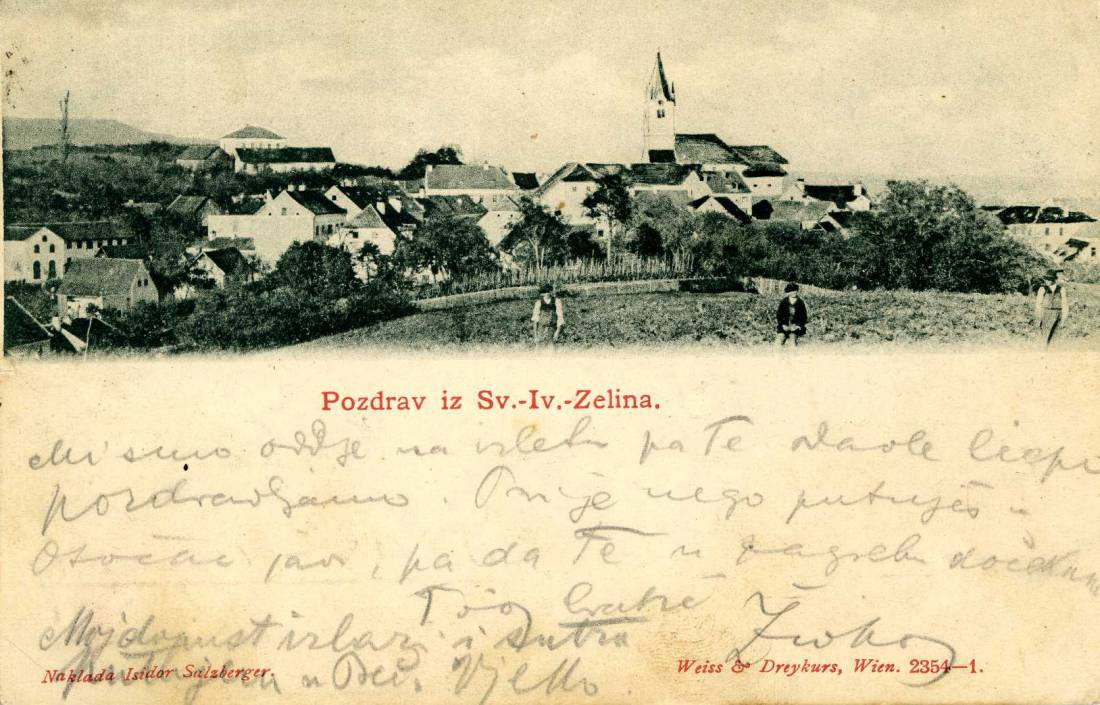 Pozdrav iz Sv.-Iv.-Zelina.
Mi smo ovdje na izletu pa Te odavle liepo
pozdravljamo. Prije nego putuješ u
Otočac javi, pa da Te u Zagrebu dočekamo
Tvoj bratić Živko
Moj dopust izlazi i sutra
putujem u Beč. Veljko
Naklada Isidor Salzberger.
Weiss & Dreykurs, Wien. 2354—1.